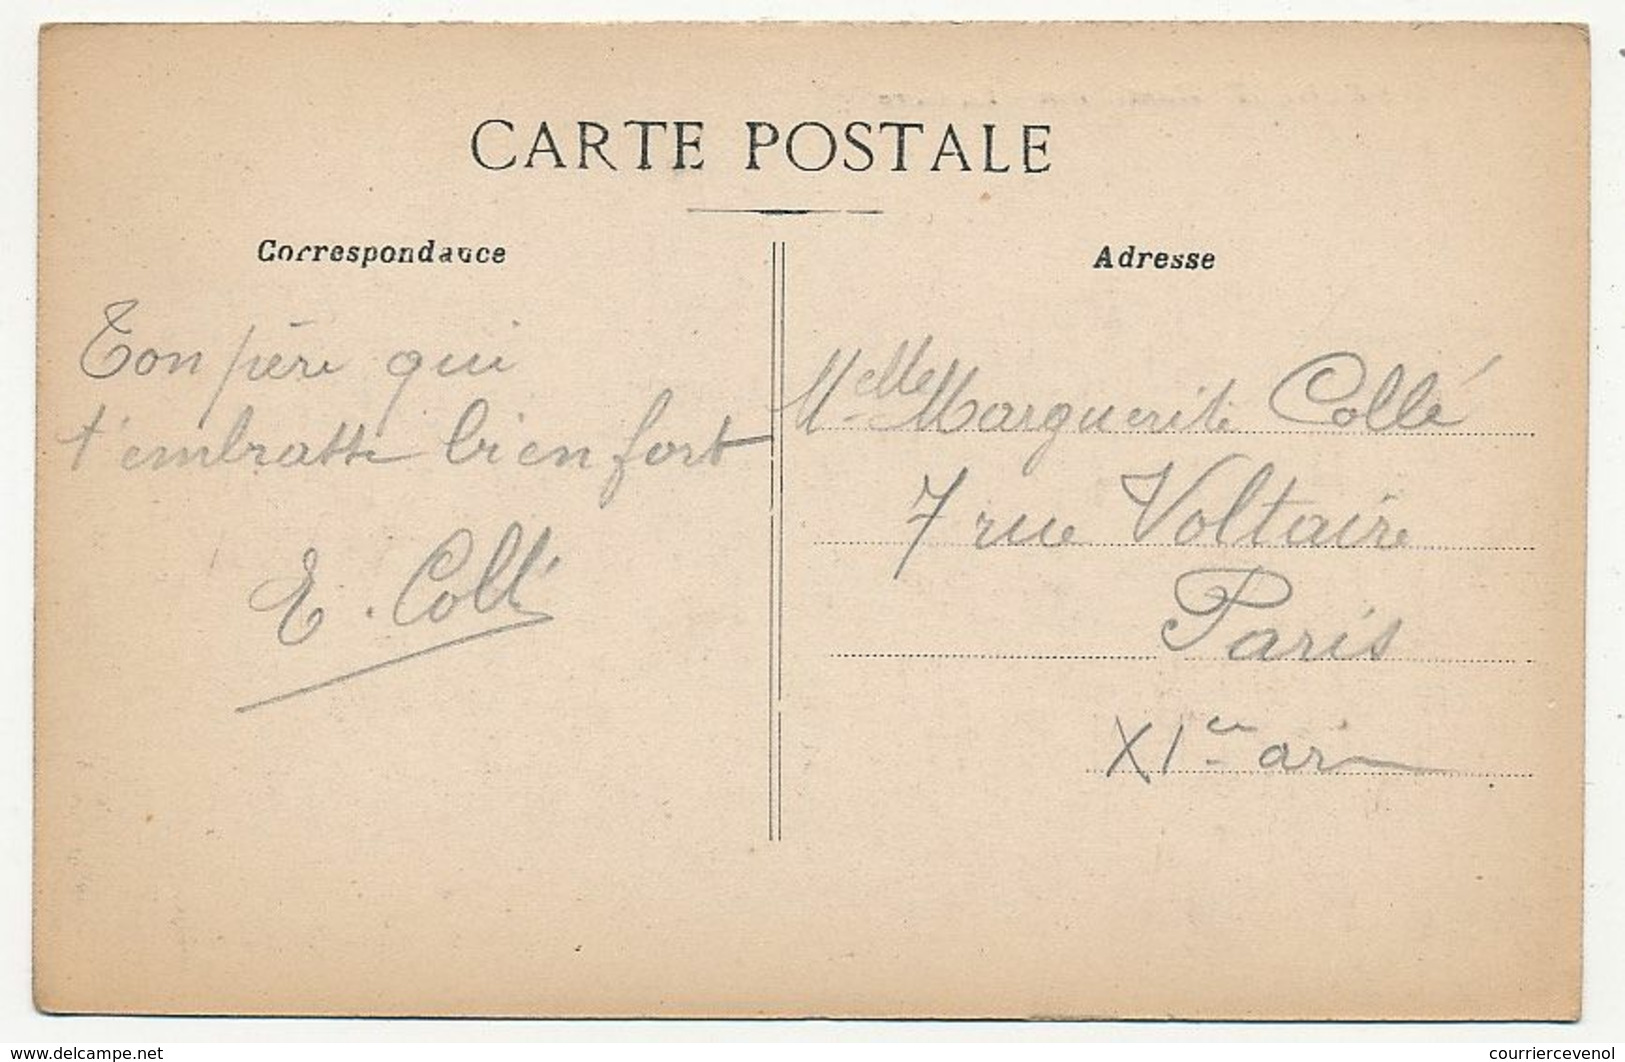 CARTE POSTALE
Correspondance
Ton père qui
t'embrasse bien fort
E. Collé
Adresse
Melle Marguerite Collé
7 rue Voltaire
Paris
XIe ar
www.delcampe.net
courriercevenol